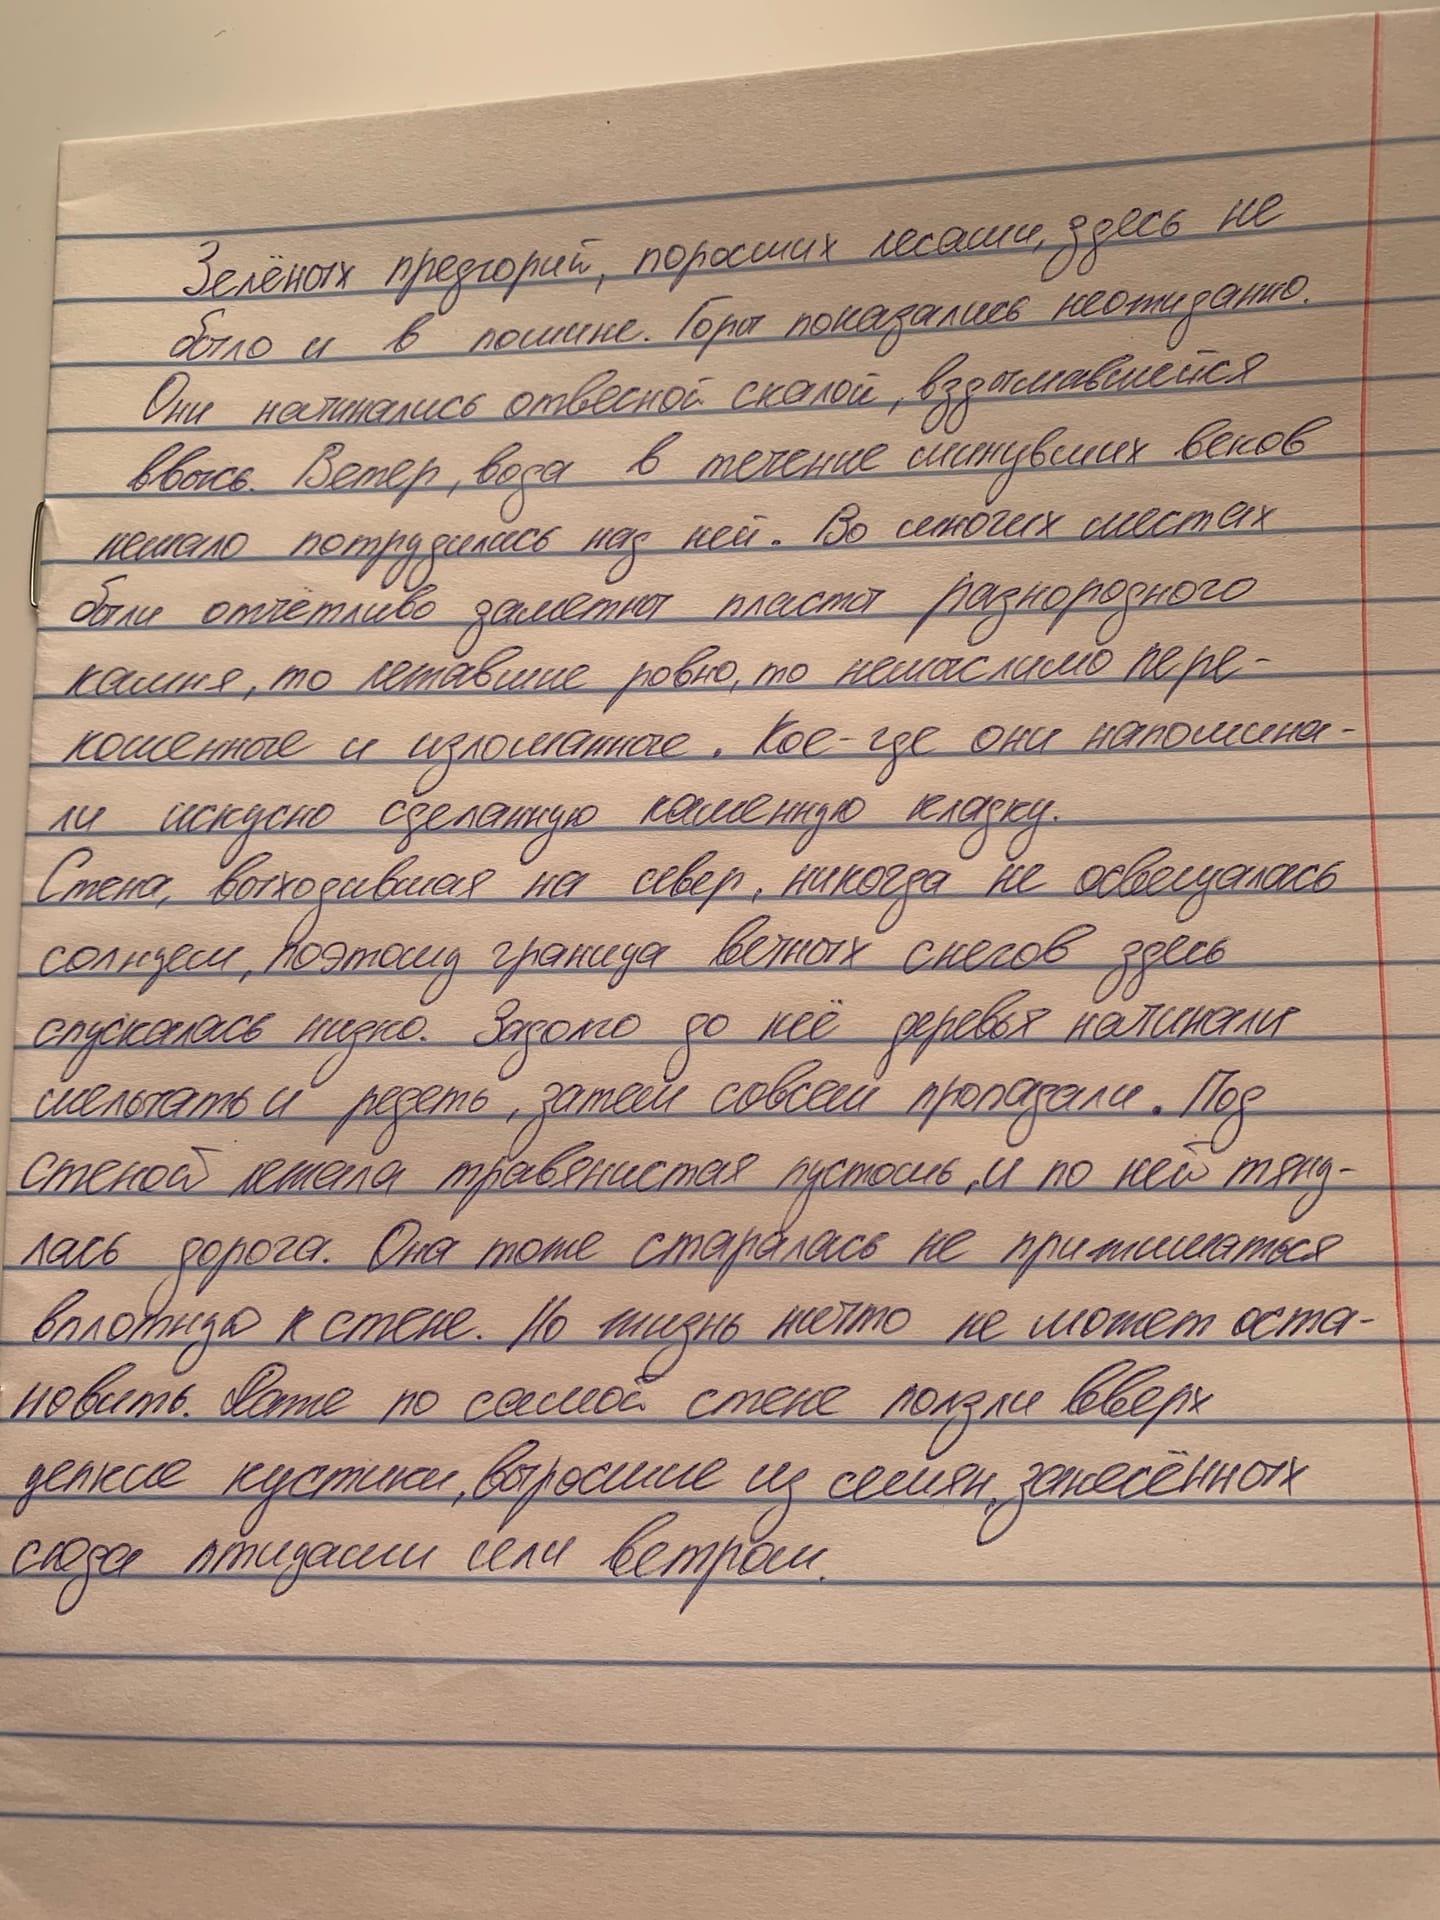 Зелёных предгорий, поросших лесами, здесь не
было и в помине. Горы показались неожиданно.
Они начинались отвесной скалой, вздымавшейся
ввысь. Ветер, вода в течение минувших веков
немало потрудились над ней. Во многих местах
были отчётливо заметны пласты разнородного
камня, то лежавшие ровно, то немыслимо пере-
кошенные и изломанные. Кое-где они напомина-
ли искусно сделанную каменную кладку.
Стена, выходившая на север, никогда не освещалась
солнцем, поэтому граница вечных снегов здесь
спускалась низко. Задолго до неё деревья начинали
мельчать и редеть, затем совсем пропадали. Под
стеной лежала травянистая пустошь, и по ней тяну-
лась дорога. Она тоже старалась не прижиматься
вплотную к стене. Но жизнь ничто не может оста-
новить. Даже по самой стене ползли вверх
цепкие кустики, выросшие из семян, занесённых
сюда птицами или ветром.